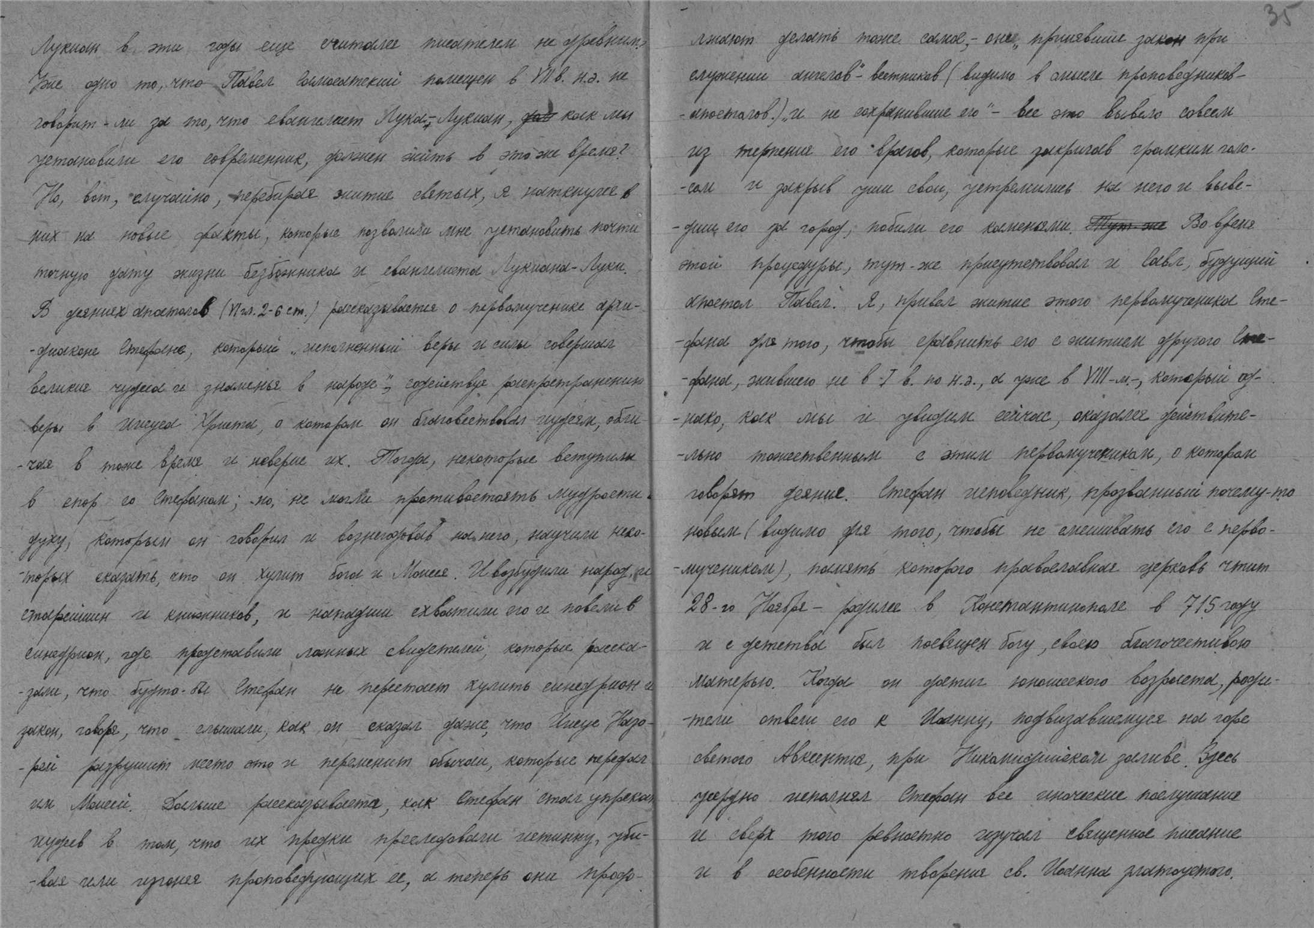 Лукиан в эти годы еще считался писателем не древним,
Уже одно то, что Павел Самосатский помещен в VII в. н.э. не
говорит-ли за то, что евангелист Лука-Лукиан, как мы
установили его современник, должен жить в это же время?
Но, вот, случайно, перебирая житие святых, я наткнулся в
них на новые факты, которые позволили мне установить почти
точную дату жизни безбожника и евангелиста Лукиана-Луки.
В деяниях апостолов (VI гл. 2-6 ст.) рассказывается о первомученике архи-
-диаконе Стефане, который „исполненный веры и силы совершал
великие чудеса и знаменья в народе", содействуя распространению
веры в Иисуса Христа, о котором он благовествовал иудеям, обли-
-чая в тоже время и неверие их. Тогда, некоторые вступили
в спор со Стефаном; но, не могли противостоять мудрости и
духу, который он говорил и вознегодовав на него, научили неко-
-торых сказать, что он хулит бога и Моисея. И возбудили народ, и
старейшин и книжников, и напавши схватили его и повели в
синедрион, где представили ложных свидетелей, которые расска-
-зали, что будто-бы Стефан не перестает хулить синедрион и
закон, говоря, что слышали, как он сказал даже, что Иисус Назо-
-рей разрушит место это и переменит обычаи, которые передал
им Моисей. Дальше рассказывается, как Стефан стал упрекать
иудеев в том, что их предки преследовали истинну, уби-
-вая или изгоняя проповедующих ее, а теперь они продо-
35
лжают делать тоже самое,- они, „принявшие закон при
служении ангелов"-вестников (видимо в смысле проповедников-
-апостолов.) и не сохранившие его"- все это вывело совсем
из терпение его врагов, которые закричав громким голо-
-сом и закрыв уши свои, устремились на него и выве-
-дши его за город, побили его каменьями. Тут-же Во время
этой процедуры, тут-же присутствовал и Савл, будущий
апостол Павел. Я, привел житие этого первомученика Сте-
-фана для того, чтобы сравнить его с житием другого Сте-
-фана, жившего не в I в. по н.э., а уже в VIII-м,- который од-
-нако, как мы и увидим сейчас, оказался действите-
-льно тожественным с этим первомучеником, о котором
говорят деяние. Стефан исповедник, прозванный почему-то
новым (видимо для того, чтобы не смешивать его с перво-
-мучеником), память которого православная церковь чтит
28-го Ноября - родился в Константинополе в 715 году
и с детства был посвящен богу, своею благочестивою
матерью. Когда он достиг юношеского возраста, роди-
-тели отвели его к Иоанну, подвизавшемуся на горе
святого Авксентия, при Никомидийском заливе. Здесь
усердно исполнял Стефан все иноческие послушание
и сверх того ревностно изучал священное писание
и в особенности творения св. Иоанна златоустого.